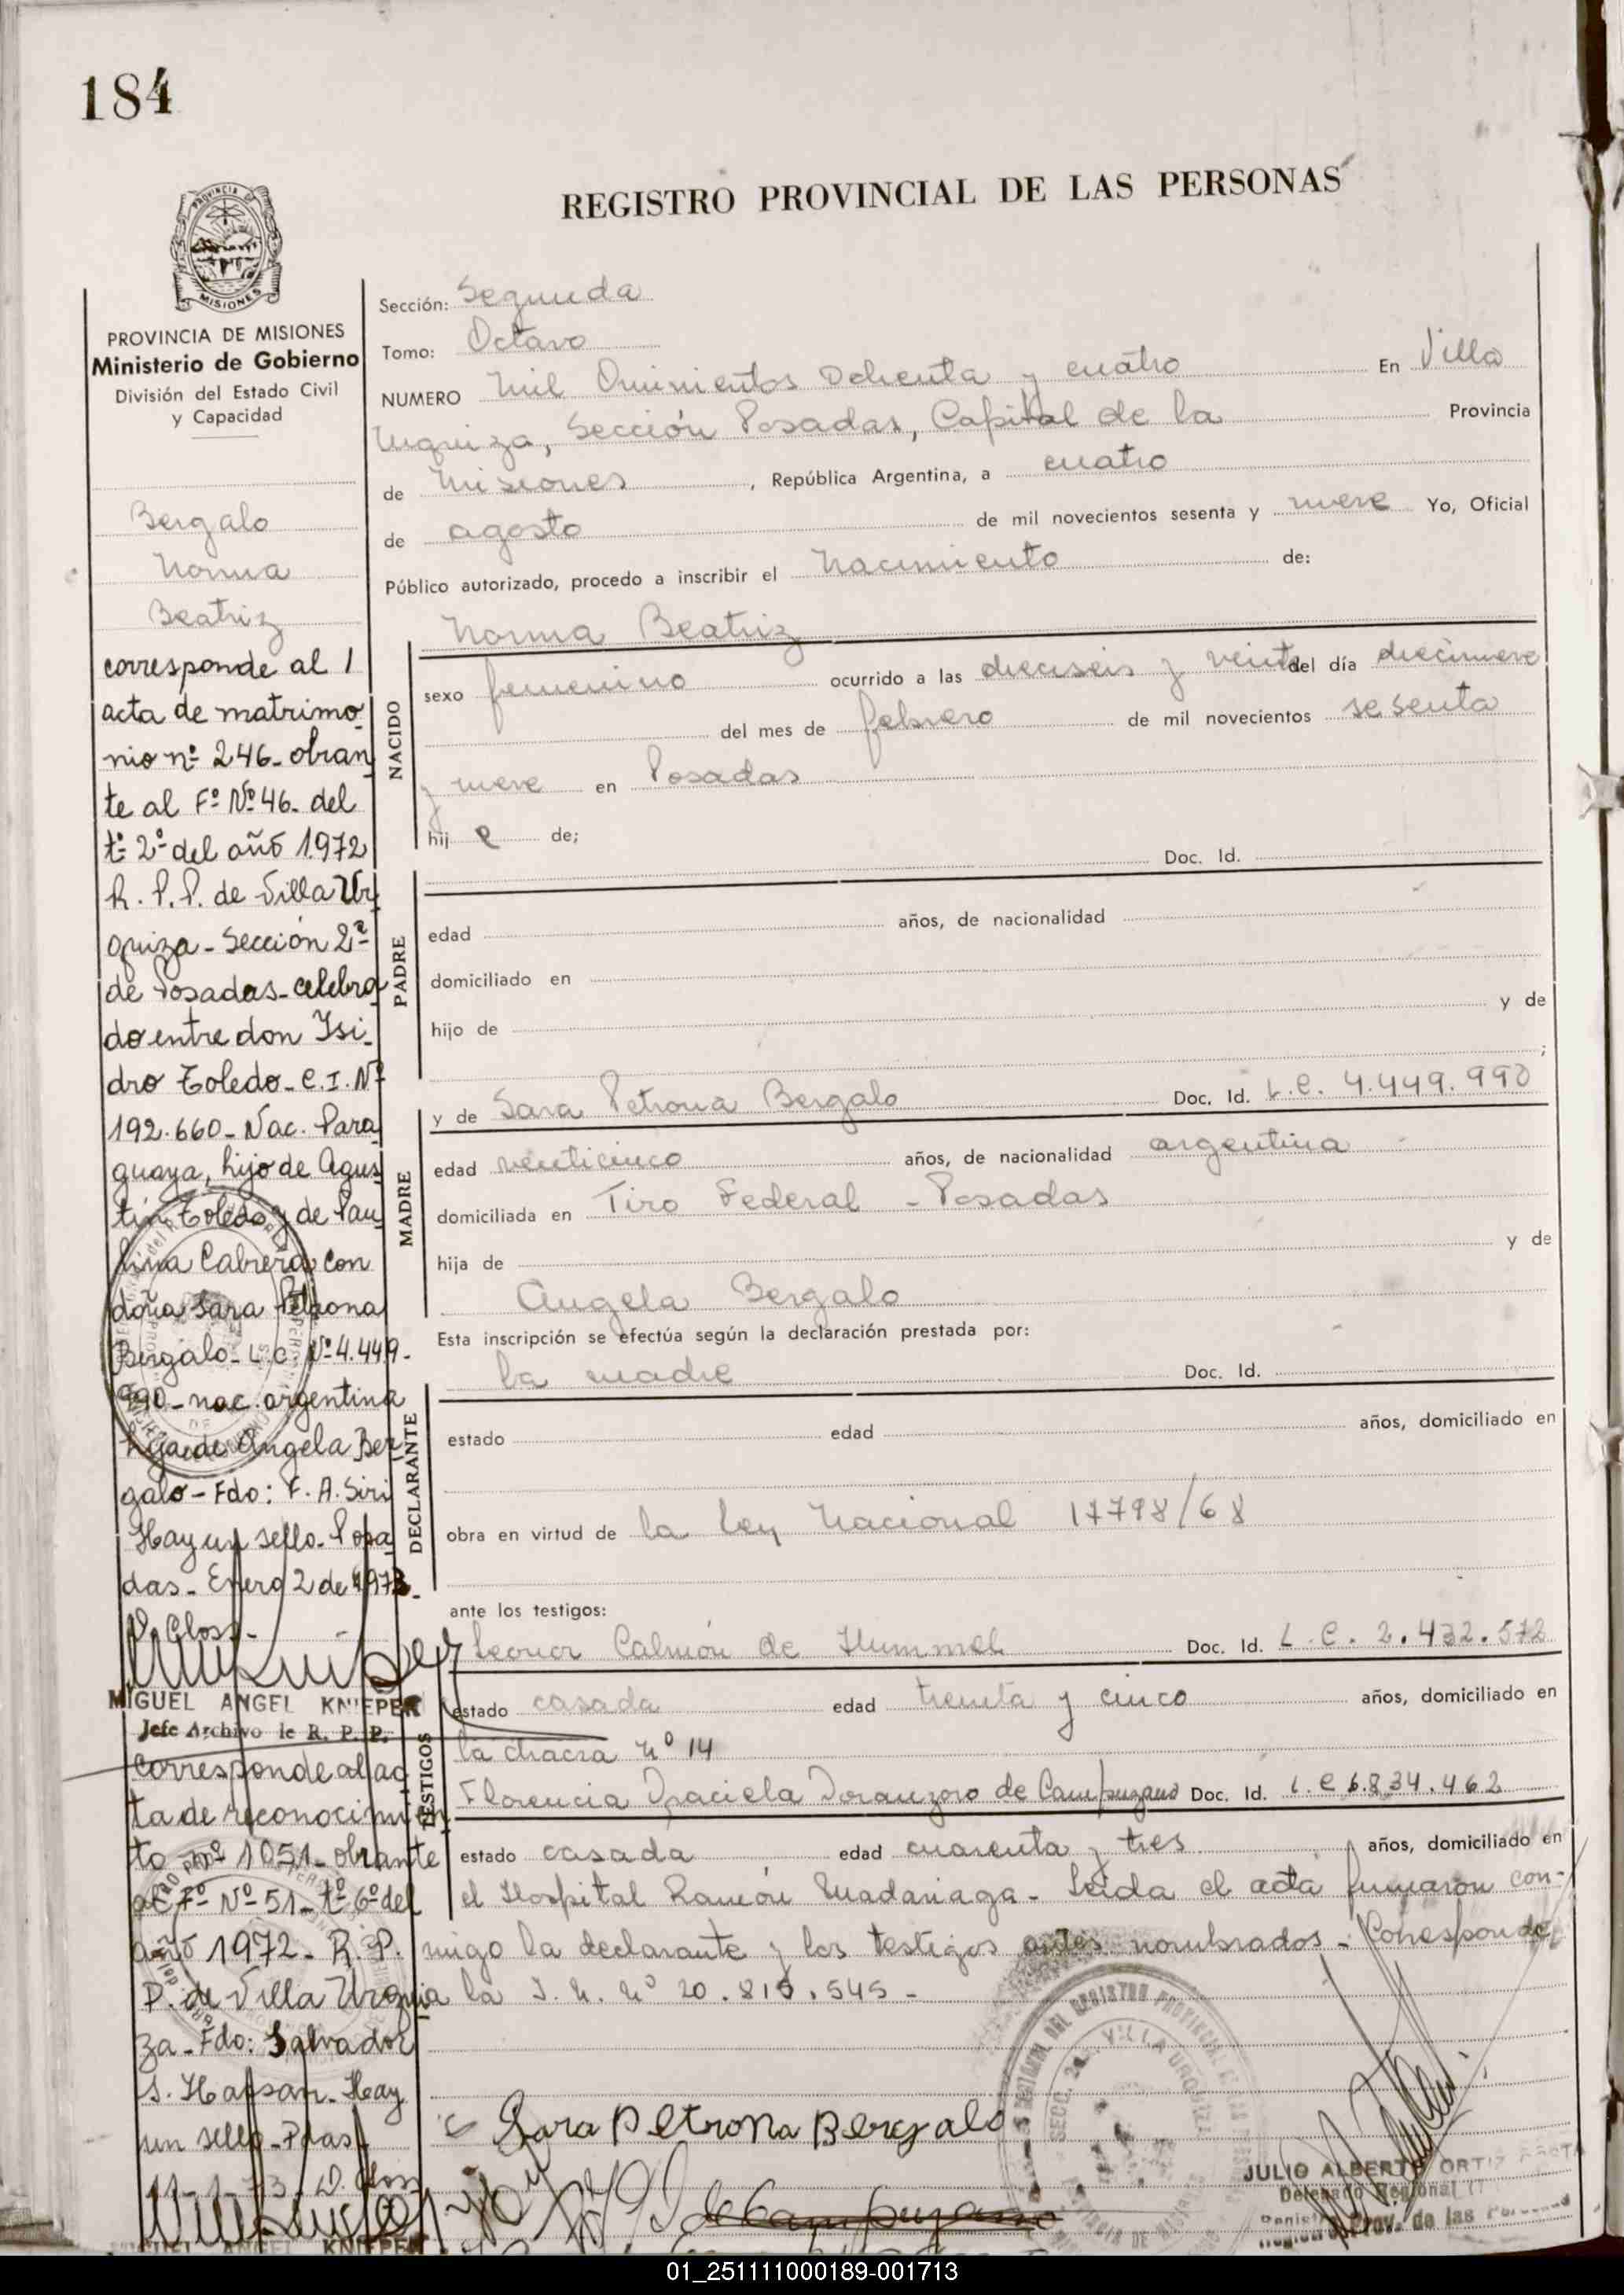 184
REGISTRO PROVINCIAL DE LAS PERSONAS
PROVINCIA DE MISIONES
Ministerio de Gobierno
División del Estado Civil
y Capacidad
Bergalo
Norma
Beatriz
corresponde al
acta de matrimo
nio nº 246- obran
te al Fº Nº 46- del
tº 2º del año 1972
R. P. P. de Villa Ur
quiza - Sección 2ª
de Posadas - celebra
do entre don Isi-
dro Toledo - C.I. Nº
192.660 - Nac. Para
guaya, hijo de Agus
tín Toledo y de Pau
lina Cabrera con
doña Sara Petrona
Bergalo - L.C. Nº 4.449-
990 - nac. argentina
hija de Angela Ber
galo - Fdo: F. A. Siri
Hay un sello - Posa
das - Enero 2 de 1973-
MIGUEL ANGEL KNIEPER
Jefe Archivo de R. P. P.
Corresponde al ac
ta de reconocimien
to nº 1051 - obrante
al Fº Nº 51 - tº 6º del
año 1972 - R. P.
P. de Villa Urqui
za - Fdo: Salvador
S. Hassan - Hay
un sello - Pdas
11-1-73
Sección: Segunda
Tomo: Octavo
NUMERO Mil Quinientos Ochenta y cuatro En Villa
Urquiza, Sección Posadas, Capital de la Provincia
de Misiones, República Argentina, a cuatro
de agosto de mil novecientos sesenta y nueve Yo, Oficial
Público autorizado, procedo a inscribir el Nacimiento de:
NACIDO
Norma Beatriz
sexo femenino ocurrido a las dieciseis y veinte del día diecinueve
del mes de febrero de mil novecientos sesenta
y nueve en Posadas
hij a de;
PADRE
Doc. Id.
edad años, de nacionalidad
domiciliado en
hijo de y de
;
MADRE
y de Sara Petrona Bergalo Doc. Id. L.C. 4.449.990
edad veinticinco años, de nacionalidad argentina
domiciliada en Tiro Federal - Posadas
hija de y de
Angela Bergalo
Esta inscripción se efectúa según la declaración prestada por:
DECLARANTE
la madre Doc. Id.
estado edad años, domiciliado en
obra en virtud de la Ley Nacional 17798/68
ante los testigos:
TESTIGOS
Leonor Calmón de Hummel Doc. Id. L.C. 2.432.572
estado casada edad treinta y cinco años, domiciliado en
la chacra nº 14
Florencia Graciela de Campuzano Doc. Id. L.C 6.834.462
estado casada edad cuarenta y tres años, domiciliado en
el Hospital Ramón Madariaga - Leida el acta firmaron con-
migo la declarante y los testigos antes nombrados - Corresponde
a la I. N. Nº 20.815.545 -
Sara Petrona Bergalo
de Campuzano
JULIO ALBERTO ORTIZ
Delegado Regional
Registro Prov. de las Personas
01_251111000189-001713